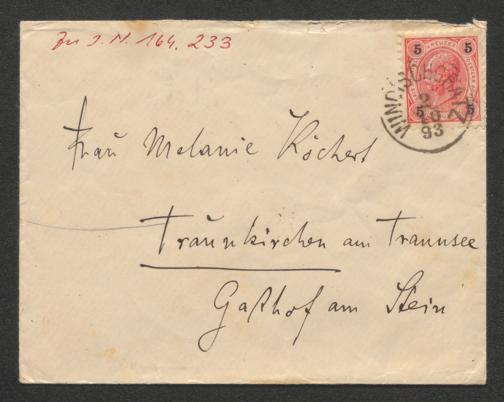 Zu I.N. 164.233
5 5
KREUZER
5 5
WINDISCHGRATZ
2
10
93
Frau Melanie Köchert
Traunkirchen am Traunsee
Gasthof am Stein